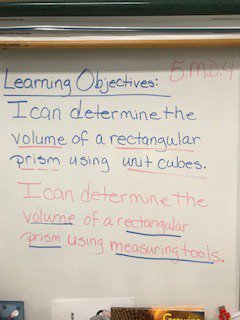 5.MD.4
Learning Objectives:
I can determine the
volume of a rectangular
prism using unit cubes.
I can determine the
volume of a rectangular
prism using measuring tools.